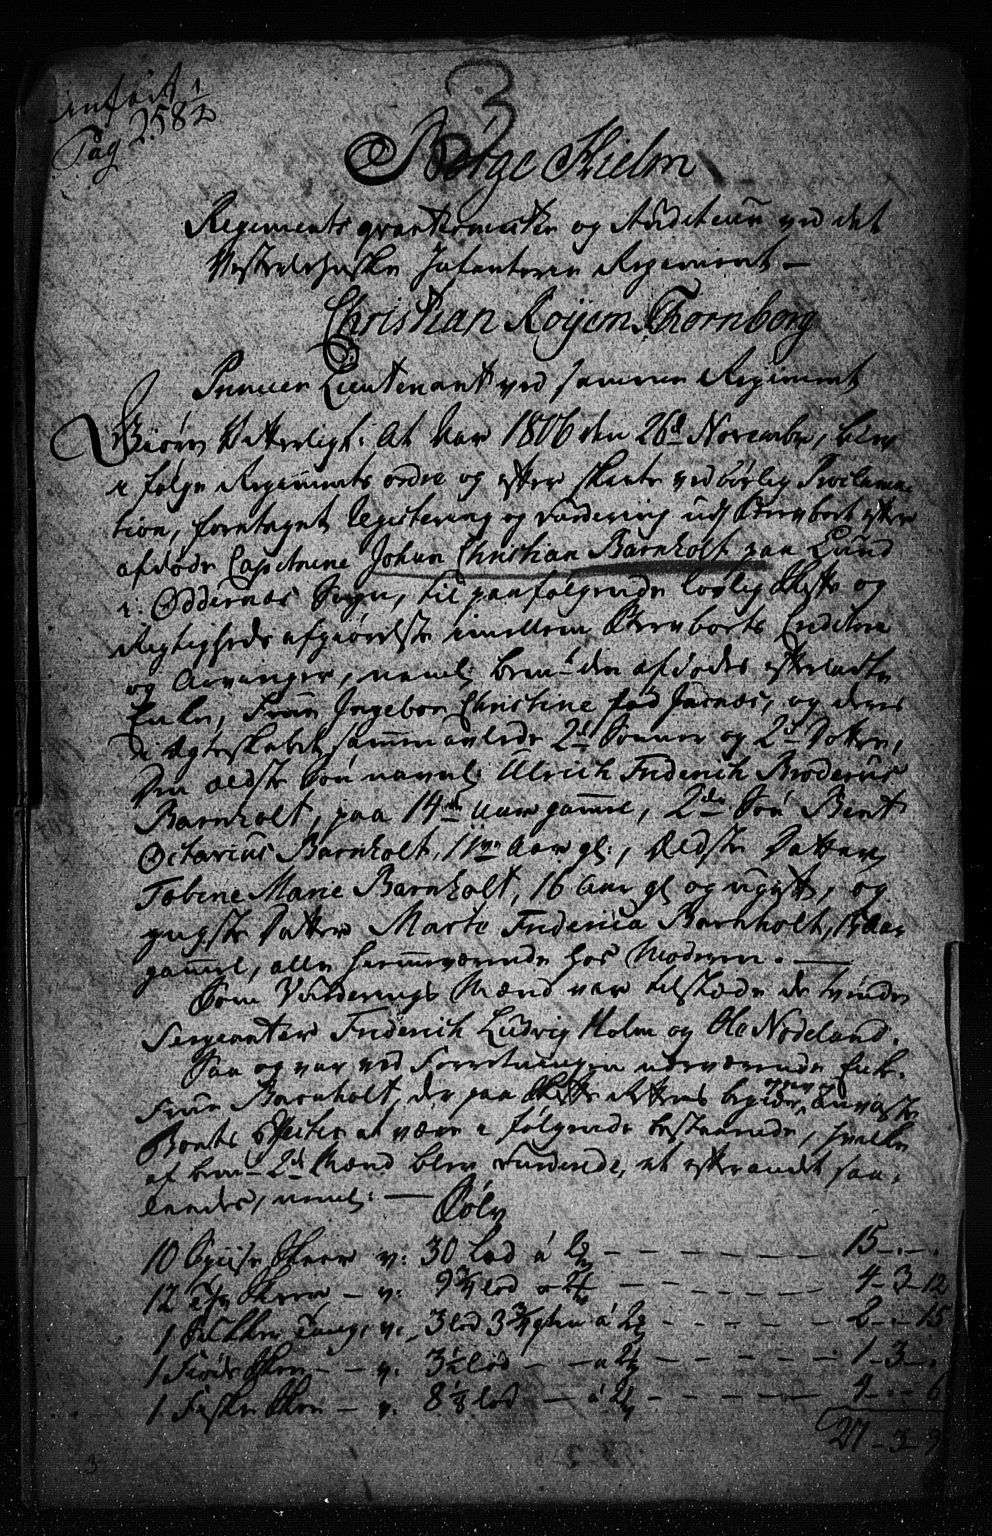 indført
Pag 258 1/2
3
Børge Hielm
Regiments qvarteermester og Auditeur ved det
Vesterlehnske Infanterie Regiment —
Christian Roijem Thornborg
Premier Lieutenant ved samme Regiment
Giøre Vitterligt: At Aar 1806 den 26d November, blev
i følge Regiments ordre og efter skeete vedbørlig Proclama
tion, foretaget Registering og Vurdering udj Sterboet efter
afdøde Capitaine Johan Christian Barnholt paa Lund
i Oddernæs Sogn, til paafølgende lovlig Skifte og
Rigtigheds afgiørelse imellem Sterboets Creditorer
og Arvinger, nemlig den afdødes efterladte
Enke, Frue Ingebor Christine fød Jacnæs, og deres
i Ægteskabet sammenavlede 2de Sønner og 2de Døttre,
Den ældste Søn navnl: Ulrich Friderich Broderus
Barnholt, paa 14de Aar gammel, 2den Søn Bent
Octavius Barnholt, 11 Aar gl:, Ældste Datter
Tobine Marie Barnholt, 16 Aar gl og ugift, og
yngste Datter Marte Friderica Barnholt, Aar
gammel, alle hiemmeværende hos Moderen. —
Som Vurderings Mænd var tilstæde de tvende
Sergeanter Friderich Ludvig Holm og Ole Nodeland.
Saa og var ved Forretningen nærværende Enke-
Frue Barnholt, der paa Skifte Rettens begiær, anviste
Boets Effecter at være i følgende bestaaende, hvilke
af bem— 2de Mænd blev vurderede, et efter andet saa-
ledes, nemlig: — Sølv
10 Spiise Skeer v: 30 Lod á — — — 15 — . — .
12 Thee Skeer — v: 9 3/4 Lod — — 4 — 3 — 12
1 Sukker Tang, v: 3 Lod 3 3/4 qtin á — — 2 — . — 15
1 Fløde Skee — — v. 3 1/2 Lod — — — 1 — 3 — .
1 Fiske Skee — v. 8 1/8 Lod — á — — 4 — . — 6
27 — 3 — 9